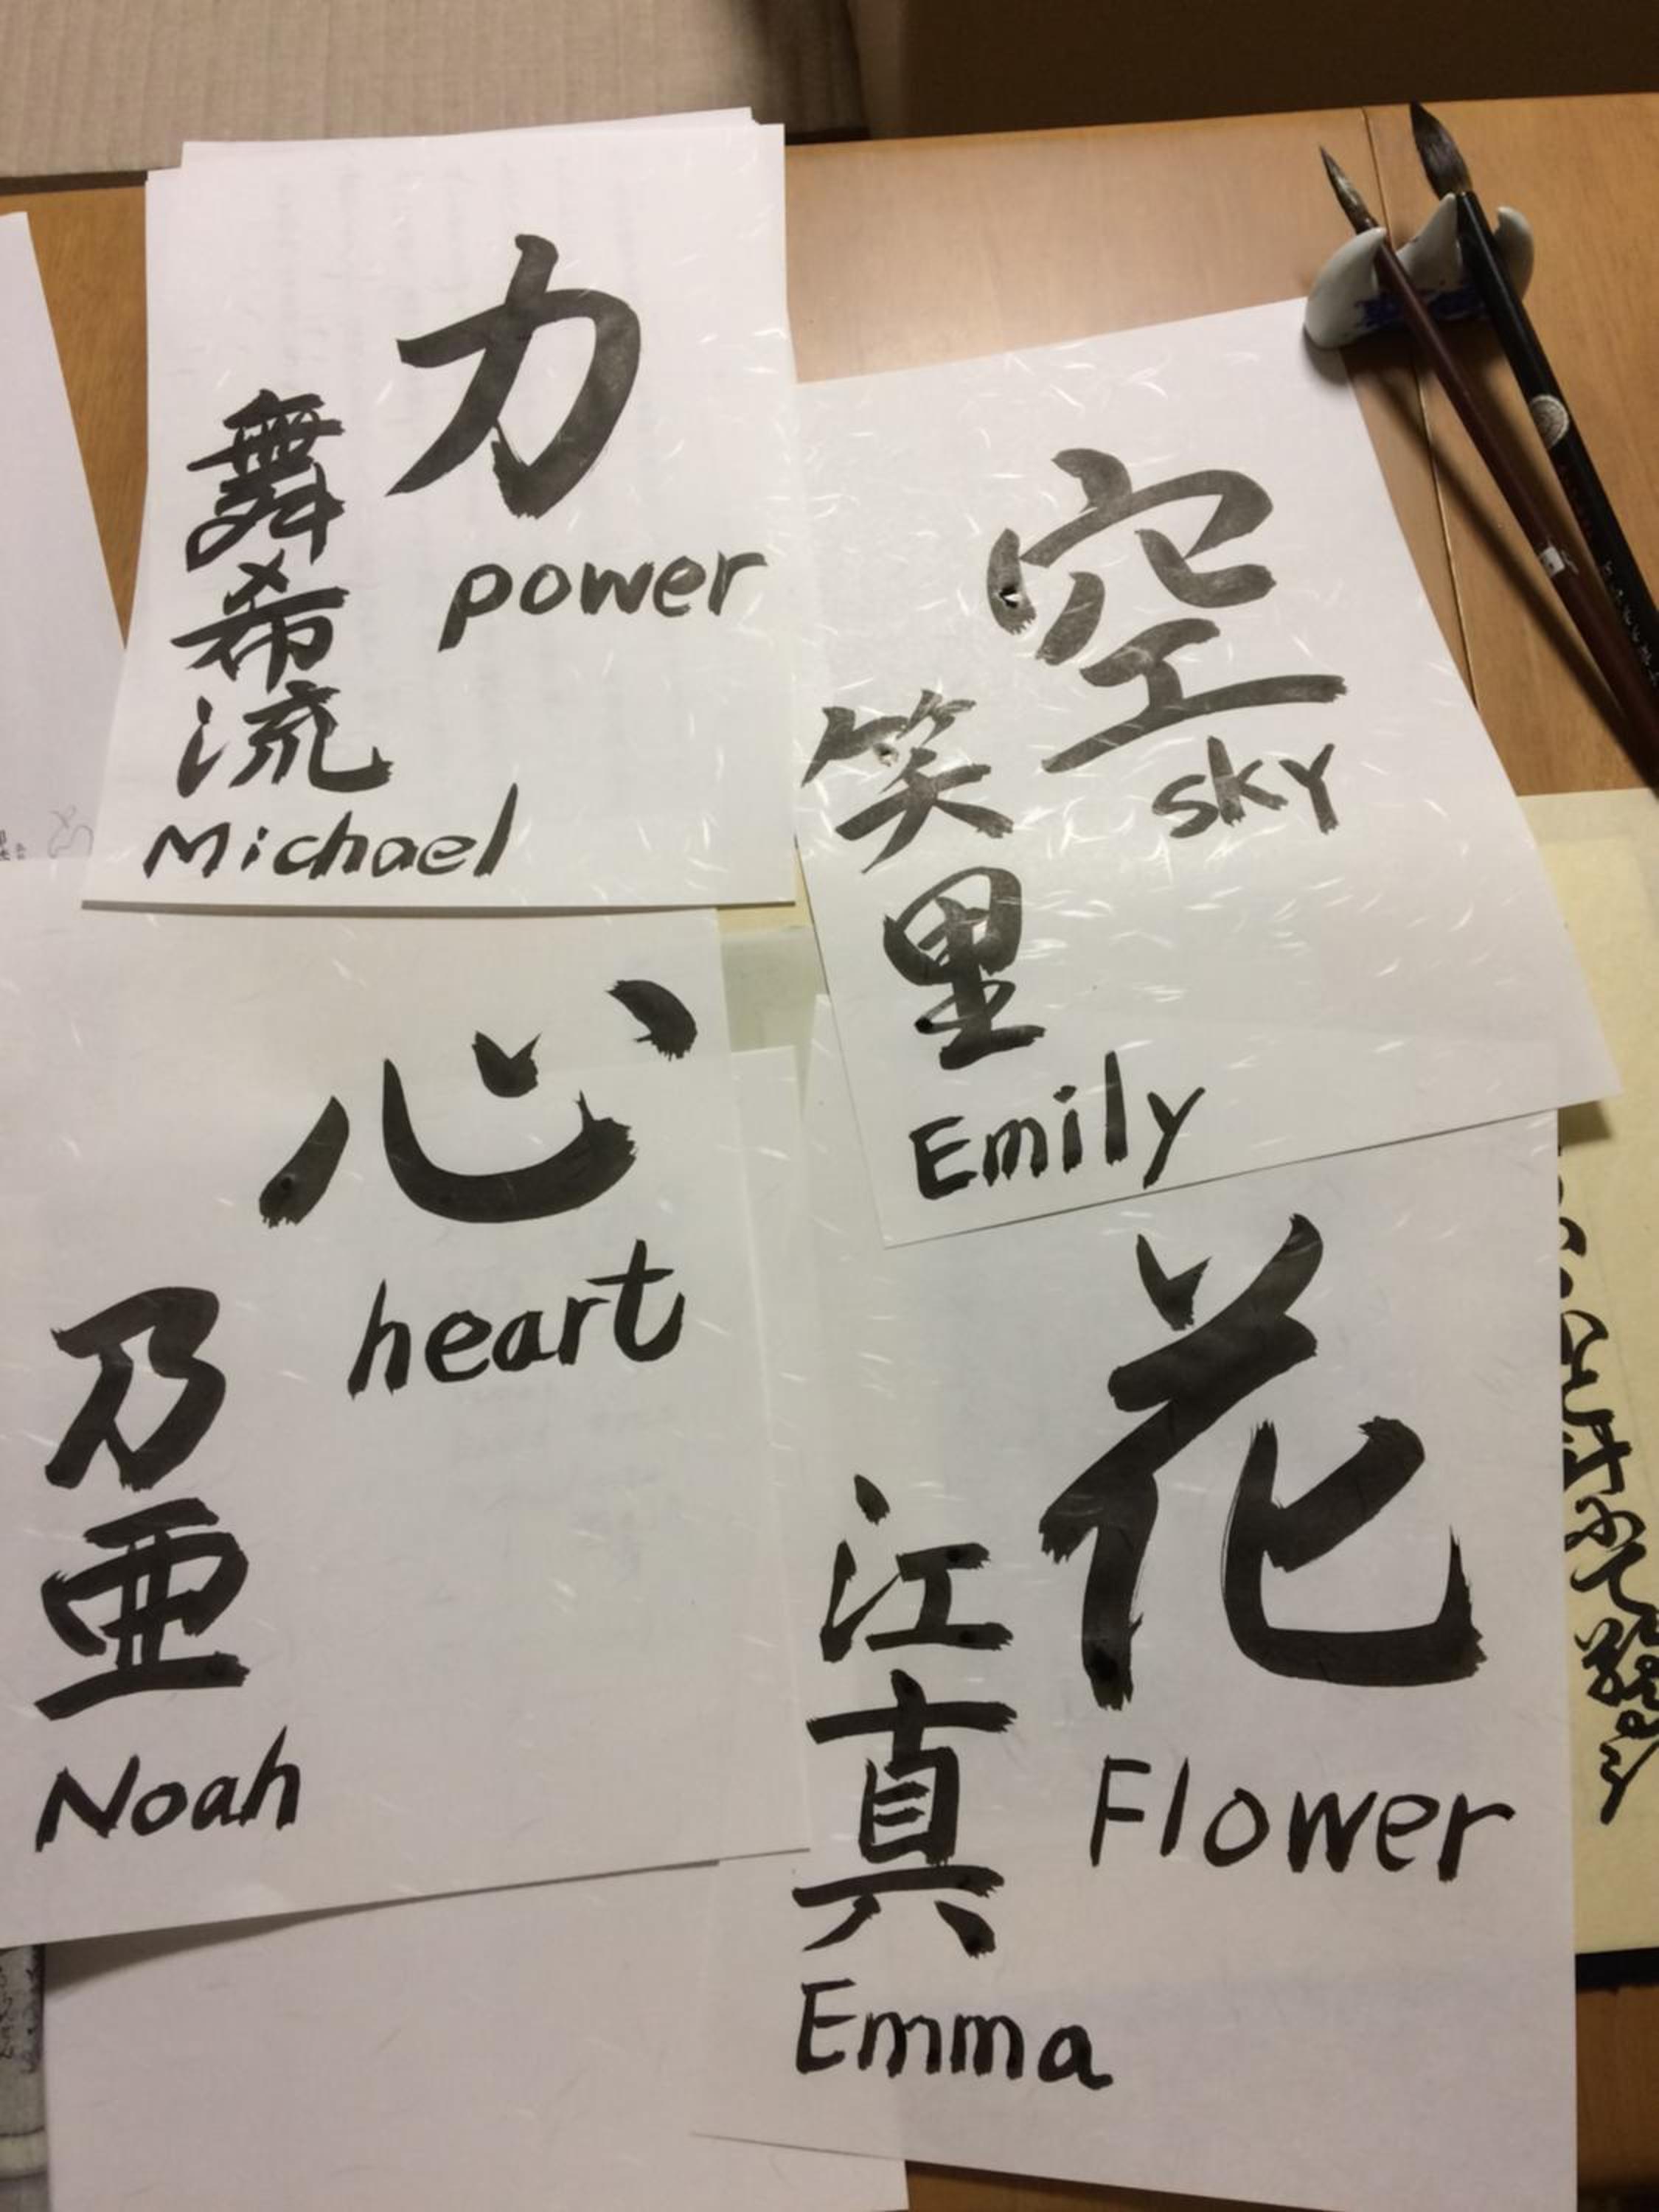 力
power
舞希流
Michael
空
sky
笑里
Emily
心
heart
乃亜
Noah
花
Flower
江真
Emma